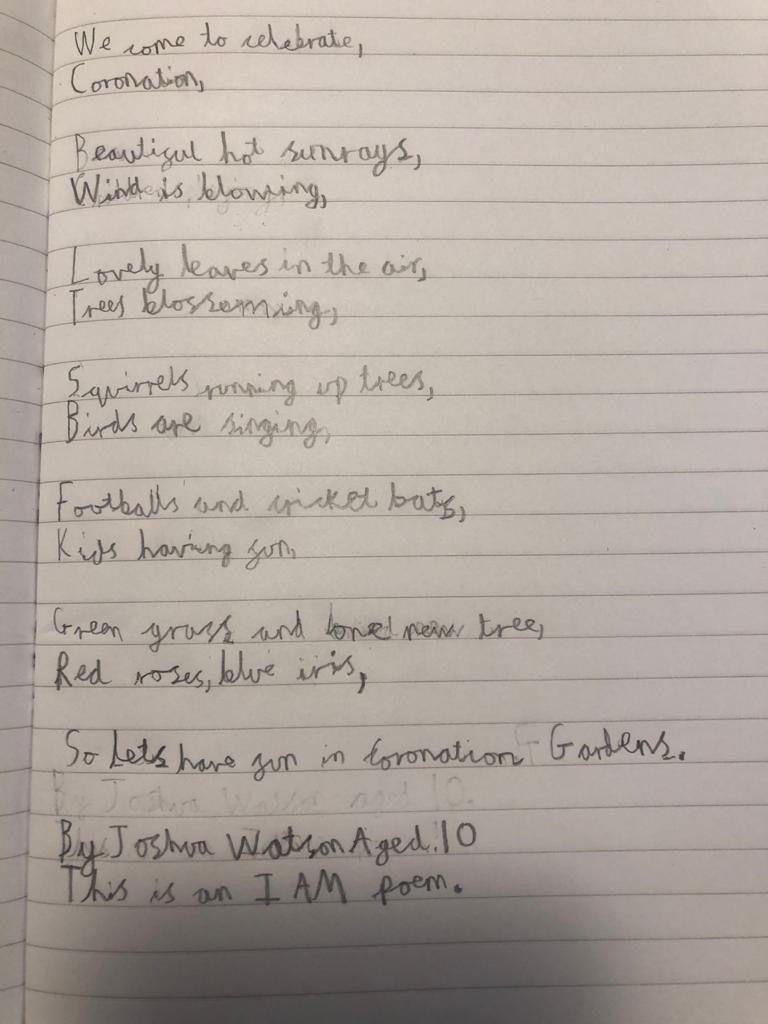 We come to celebrate,
Coronation,
Beautiful hot sunrays,
Wind is blowing,
Lovely leaves in the air,
Trees blossoming,
Squirrels running up trees,
Birds are singing,
Footballs and cricket bats,
Kids having fun,
Green grass and one new tree,
Red roses, blue iris,
So Lets have fun in Coronation Gardens.
By Joshua Watson aged 10.
By Joshua Watson Aged.10
This is an I AM poem.